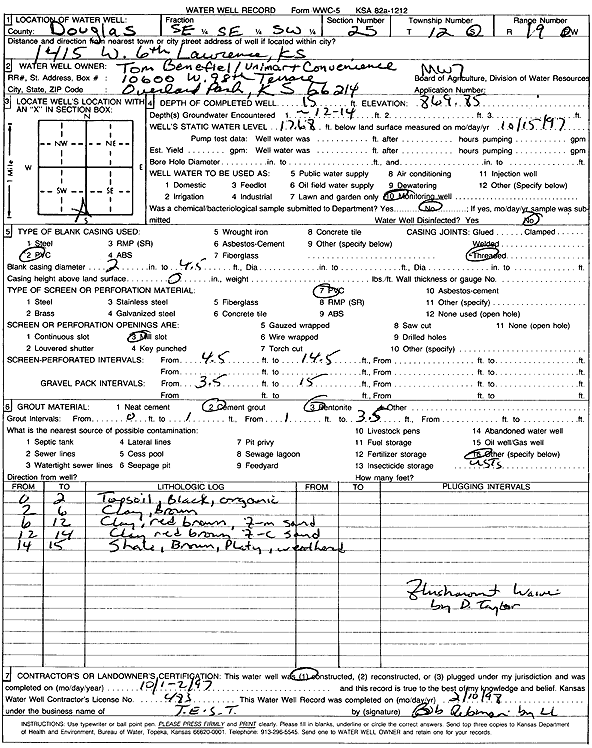 WATER WELL RECORD Form WWC-5 KSA 82a-1212
1 LOCATION OF WATER WELL: Fraction Section Number Township Number Range Number
County: Douglas SE ¼ SE ¼ SW ¼ 25 T 12 S R 19 E/W
Distance and direction from nearest town or city street address of well if located within city?
1415 W. 6th Lawrence, KS
2 WATER WELL OWNER: Tom Benefiel/Unimart Convenience MW7
RR#, St. Address, Box # : 10600 W. 98th Terrace Board of Agriculture, Division of Water Resources
City, State, ZIP Code : Overland Park, KS 66214 Application Number:
3 LOCATE WELL'S LOCATION WITH AN "X" IN SECTION BOX:
N
NW NE
W E
SW SE
S
1 Mile
4 DEPTH OF COMPLETED WELL 15 ft. ELEVATION: 869.85
Depth(s) Groundwater Encountered 1. ~12-14 ft. 2. ft. 3. ft.
WELL'S STATIC WATER LEVEL 17.68 ft. below land surface measured on mo/day/yr 10/15/97
Pump test data: Well water was ft. after hours pumping gpm
Est. Yield gpm: Well water was ft. after hours pumping gpm
Bore Hole Diameter in. to ft., and in. to ft.
WELL WATER TO BE USED AS: 5 Public water supply 8 Air conditioning 11 Injection well
1 Domestic 3 Feedlot 6 Oil field water supply 9 Dewatering 12 Other (Specify below)
2 Irrigation 4 Industrial 7 Lawn and garden only 10 Monitoring well
Was a chemical/bacteriological sample submitted to Department? Yes No ; If yes, mo/day/yr sample was submitted Water Well Disinfected? Yes No
5 TYPE OF BLANK CASING USED: 5 Wrought iron 8 Concrete tile CASING JOINTS: Glued Clamped
1 Steel 3 RMP (SR) 6 Asbestos-Cement 9 Other (specify below) Welded
2 PVC 4 ABS 7 Fiberglass Threaded
Blank casing diameter 2 in. to 4.5 ft., Dia in. to ft., Dia in. to ft.
Casing height above land surface 0 in., weight lbs./ft. Wall thickness or gauge No.
TYPE OF SCREEN OR PERFORATION MATERIAL: 7 PVC 10 Asbestos-cement
1 Steel 3 Stainless steel 5 Fiberglass 8 RMP (SR) 11 Other (specify)
2 Brass 4 Galvanized steel 6 Concrete tile 9 ABS 12 None used (open hole)
SCREEN OR PERFORATION OPENINGS ARE: 5 Gauzed wrapped 8 Saw cut 11 None (open hole)
1 Continuous slot 3 Mill slot 6 Wire wrapped 9 Drilled holes
2 Louvered shutter 4 Key punched 7 Torch cut 10 Other (specify)
SCREEN-PERFORATED INTERVALS: From 4.5 ft. to 14.5 ft., From ft. to ft.
From ft. to ft., From ft. to ft.
GRAVEL PACK INTERVALS: From 3.5 ft. to 15 ft., From ft. to ft.
From ft. to ft., From ft. to ft.
6 GROUT MATERIAL: 1 Neat cement 2 Cement grout 3 Bentonite 4 Other
Grout Intervals: From 0 ft. to 1 ft., From 1 ft. to 3.5 ft., From ft. to ft.
What is the nearest source of possible contamination: 10 Livestock pens 14 Abandoned water well
1 Septic tank 4 Lateral lines 7 Pit privy 11 Fuel storage 15 Oil well/Gas well
2 Sewer lines 5 Cess pool 8 Sewage lagoon 12 Fertilizer storage 16 Other (specify below)
3 Watertight sewer lines 6 Seepage pit 9 Feedyard 13 Insecticide storage USTs
Direction from well? How many feet?
FROM TO LITHOLOGIC LOG FROM TO PLUGGING INTERVALS
0 2 Topsoil, Black, organic
2 6 Clay, Brown
6 12 Clay, red brown, 7-m sand
12 14 Clay red brown, 7-c sand
14 15 Shale, Brown, Platy, weathered
Flushmount Waiver
by D. Taylor
7 CONTRACTOR'S OR LANDOWNER'S CERTIFICATION: This water well was (1) constructed, (2) reconstructed, or (3) plugged under my jurisdiction and was
completed on (mo/day/year) 10/1-2/97 and this record is true to the best of my knowledge and belief. Kansas
Water Well Contractor's License No. 483 This Water Well Record was completed on (mo/day/yr) 2/10/98
under the business name of T.E.S.T. by (signature)
INSTRUCTIONS: Use typewriter or ball point pen. PLEASE PRESS FIRMLY and PRINT clearly. Please fill in blanks, underline or circle the correct answers. Send top three copies to Kansas Department
of Health and Environment, Bureau of Water, Topeka, Kansas 66620-0001. Telephone: 913-296-5545. Send one to WATER WELL OWNER and retain one for your records.